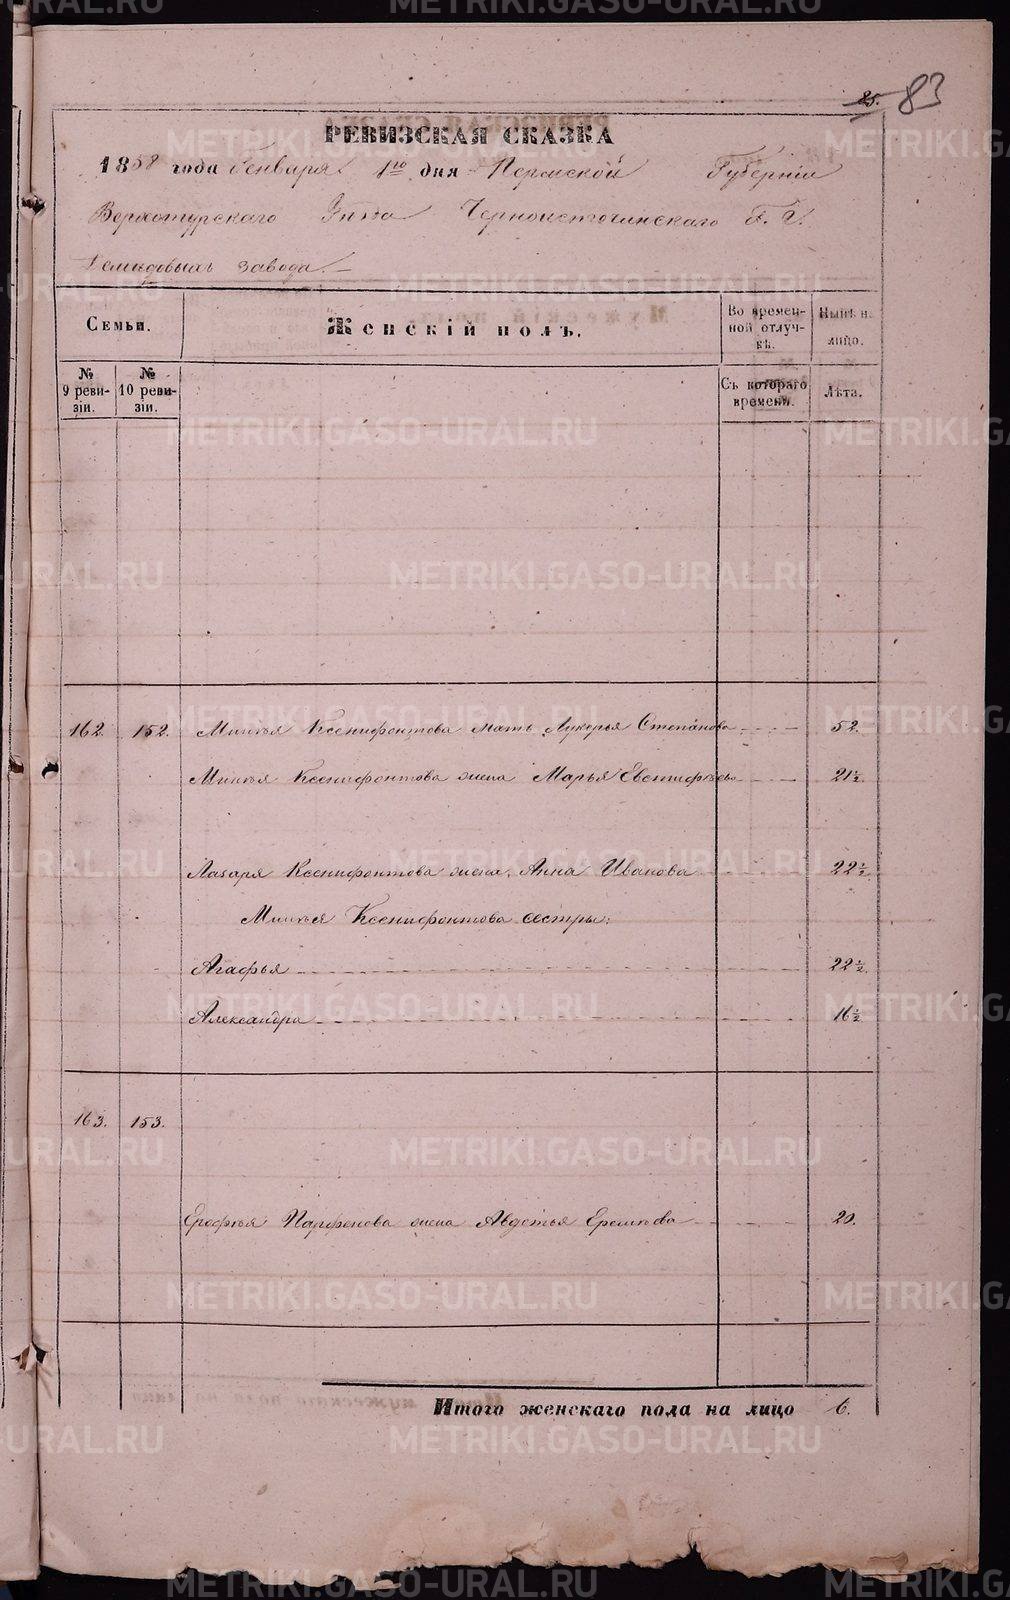 25. 83
РЕВИЗСКАЯ СКАЗКА
1858 года Генваря 1го дня Пермской Губерніи
Верхотурскаго Уѣзда Черноисточинскаго Г. Г.
Демидовыхъ завода.
Семьи.
Женскій полъ.
Во времен-
ной отлуч-
кѣ.
Нынѣ н.
лицо.
№
9 реви-
зіи.
№
10 реви-
зіи.
Съ котораго
времени.
Лѣта.
162. 152. Минѣя Ксенифонтова мать Лукерья Степанова 52.
Минѣя Ксенифонтова жена Марья Евстифѣева 21½.
Лазаря Ксенифонтова жена, Анна Иванова 22½.
Минѣя Ксенифонтова сестры:
Агафья 22½.
Александра 16½.
163. 153.
Ерофѣя Парфенова жена Авдотья Еремѣева 20.
Итого женскаго пола на лицо 6.
METRIKI.GASO-URAL.RU